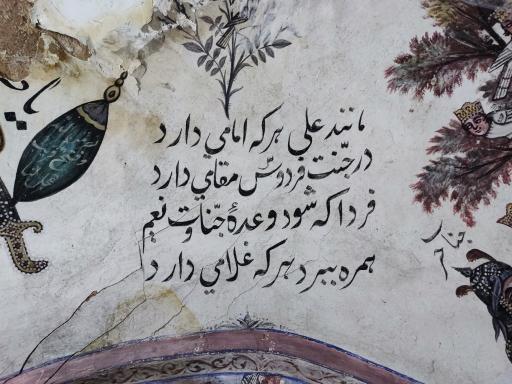 مانند علی هرکه امامی دارد
در جنّت فردوس مقامی دارد
فردا که شود وعدهٔ جنّات و نعیم
همره ببرد هرکه غلامی دارد